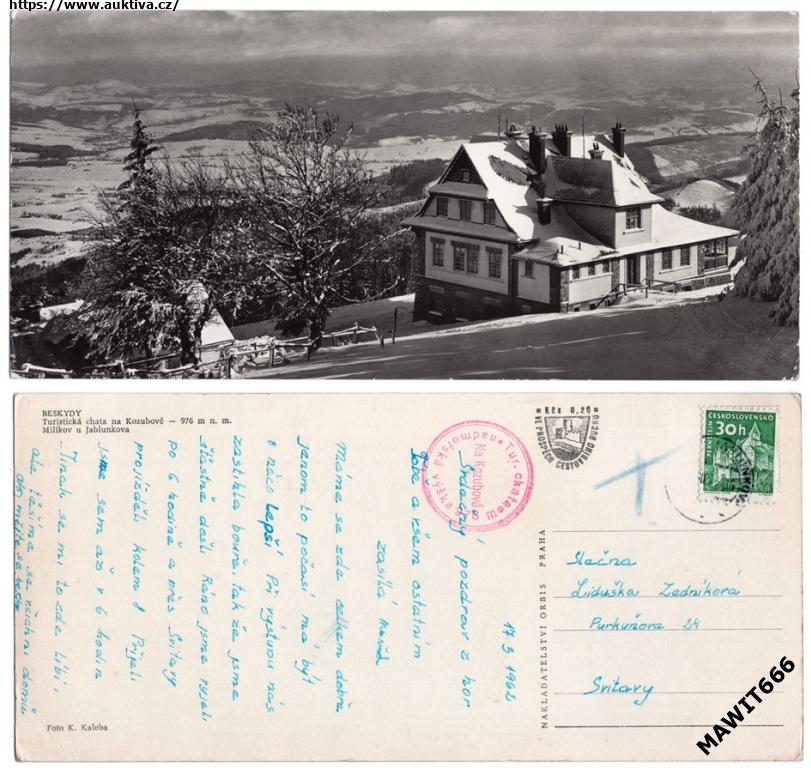 https://www.auktiva.cz/
BESKYDY
Turistická chata na Kozubové — 976 m n. m.
Milíkov u Jablunkova
17 3 1962
Srdečný pozdrav z hor
Tobě a všem ostatním
zasílá
Máme se zde celkem dobře
Jenom to počasí má být
o něco lepší Při výstupu nás
zastihla bouře, tak že jsme
šťastně došli Ráno jsme vyjeli
po 6 hodině a přes Svitavy
projížděli kolem 8 Přijeli
jsme sem až v 6 hodin
Jinak se mi to zde líbí,
ale těšíme se všichni domů
Foto K. Kaleba
Tur. chata
Na Kozubové
nadmořská výška
Kčs 0,20
VE PROSPĚCH CESTOVNÍHO RUCHU
ČESKOSLOVENSKO
30h
PERNŠTEJN
NAKLADATELSTVÍ ORBIS PRAHA
Slečna
Liduška Zedníková
Purkyňova 24
Svitavy
MAWIT666